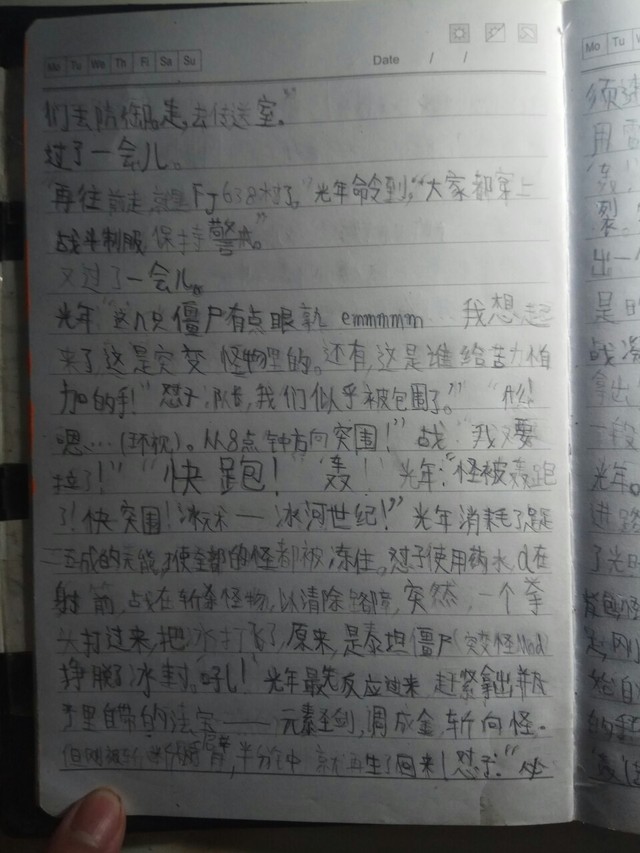 Mo Tu We Th Fr Sa Su
Date / /
们去陪你走,去传送室。”
过了一会儿。
再往前走,就是Fj638村了。”光年命令到,“大家都穿上
战斗制服 保持警戒。”
又过了一会儿。
光年“这几只僵尸有点眼熟 emmmmm 我想起
来了这是突变怪物里的。还有,这是谁给苦力怕
加的手!”怼子:队长,我们似乎被包围了。”“什么!
嗯…(环视)。从8点钟方向突围!”战“我要
拉了!”“快跑!”轰!”光年:“怪被轰跑
了!快突围!冰术一冰河世纪!”光年消耗了足足
三五成的元能,使全部的怪都被冻住。怼子使用药水 在
射箭,战在斩杀怪物,以清除障碍,突然,一个拳
头打过来,把冰打飞了,原来,是泰坦僵尸(突变怪Mod)
挣脱了冰封。吼!”光年最先反应过来 赶紧拿出
手里自带的法宝——元素圣剑,调成金,斩向怪。
但刚被斩断臂,半分钟 就再生了回来!怼子:“
Mo Tu
须
用
裂。
出一个
是
战
拿出
一段
光年。
进路
了光